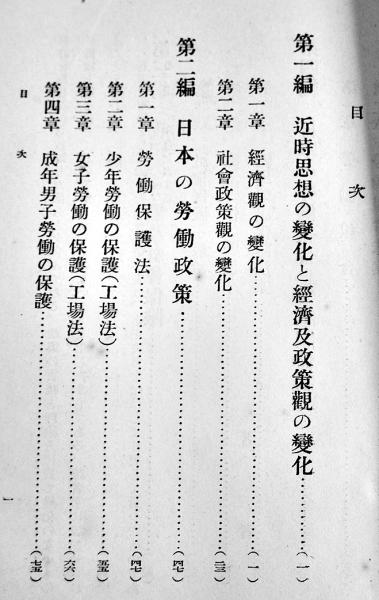 目次
第一編 近時思想の變化と經濟及政策觀の變化…………(一)
第一章 經濟觀の變化…………(一)
第二章 社會政策觀の變化…………(三三)
第二編 日本の勞働政策…………(四七)
第一章 勞働保護法…………(四七)
第二章 少年勞働の保護(工場法)…………(五五)
第三章 女子勞働の保護(工場法)…………(六六)
第四章 成年男子勞働の保護…………(七五)
目次
一